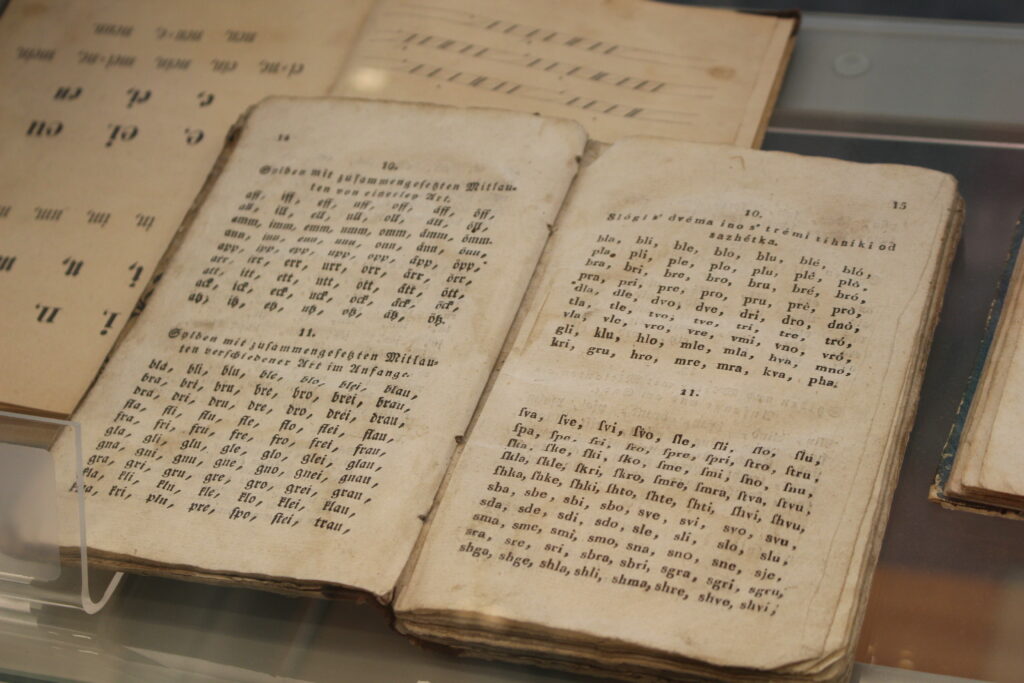 14
10.
Sylben mit zusammengesetzten Mitlau-
ten von einerley Art.
aff, iff, eff, uff, off, äff, öff,
all, ill, ell, ull, oll, äll, öll,
emm, imm, emm, umm, omm, ämm, ömm.
ann, inn, enn, unn, onn, änn, önn,
app, ipp, epp, upp, opp, äpp, öpp,
arr, irr, err, urr, orr, ärr, örr,
att, itt, ett, utt, ott, ätt, ött,
ack, ick, eck, uck, ock, äck, öck,
atz, itz, etz, utz, otz, ätz, ötz.
11.
Sylben mit zusammengesetzten Mitlau-
ten verschiedener Art im Anfange.
bla, bli, blu, ble, blo, blei, blau,
bra, bri, bru, bre, bro, brei, brau,
dra, dri, dru, dre, dro, drei, drau,
fla, fli, flu, fle, flo, flei, flau,
fra, fri, fru, fre, fro, frei, frau,
gla, gli, glu, gle, glo, glei, glau,
gna, gni, gnu, gne, gno, gnei, gnau,
gra, gri, gru, gre, gro, grei, grau,
kla, kli, klu, kle, klo, klei, klau,
kri, plu, pre, spo, stei, trau,
15
10.
Slógi s' dvéma ino s' trémi tihniki od
sazhétka.
bla, bli, ble, blo, blu, blé, bló,
pla, pli, ple, plo, plu, plé, pló,
bra, bri, bre, bro, bru, bré, bró,
pra, pri, pre, pro, pru, prè, prò,
dla, dle, dvo, dve, dri, dro, dnò,
tla, tle, tvo, tve, tri, tre, tró,
vla, vle, vro, vre, vmi, vno, vró,
gli, klu, hlo, mle, mla, hva, mno,
kri, gru, hro, mre, mra, kva, pha.
11.
ſva, ſve, ſvi, ſvo, ſle, ſli, ſlo, ſlu,
ſpa, ſpe, ſpre, ſpri, ſtro, ſtru,
ſka, ſke, ſki, ſko, ſme, ſmi, ſno, ſnu,
ſkla, ſkle, ſkri, ſkro, ſmre, ſmra, ſtva, ſtvu,
ſhka, ſhke, ſhki, ſhto, ſhte, ſhti, ſhvi, ſhvu,
sba, sbe, sbi, sbo, sve, svi, svo, svu,
sda, sde, sdi, sdo, sle, sli, slo, slu,
sma, sme, smi, smo, sna, sno, sne, sje,
sra, sre, sri, sbra, sbri, sgra, sgri, sgru,
shga, shge, shla, shli, shma, shre, shve, shvi,